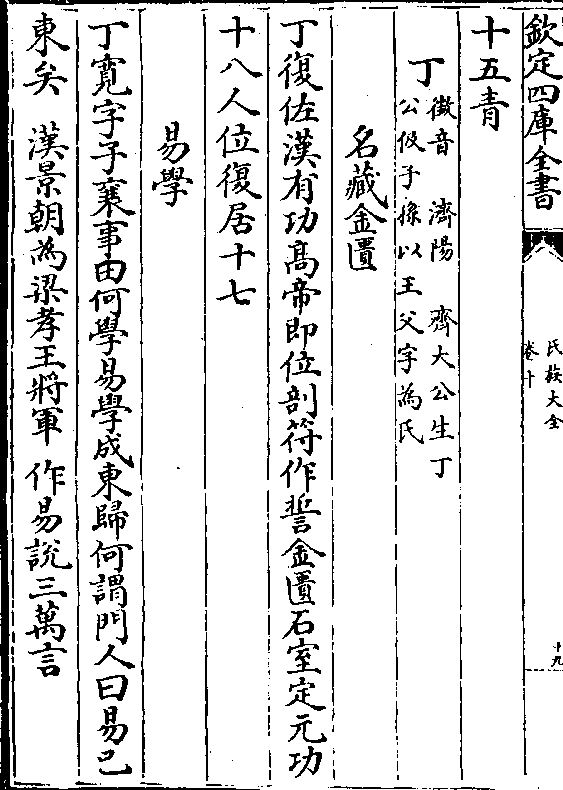 欽定四庫全書
氏族大全
卷十
十九
十五青
丁
徴音 濟陽 齊大公生丁
公伋子孫以王父字為氏
名藏金匱
丁復佐漢有功髙帝即位剖符作誓金匱石室定元功
十八人位復居十七
易學
丁寛字子襄事田何學易學成東歸何謂門人曰易已
東矣 漢景朝為梁孝王將軍 作易說三萬言